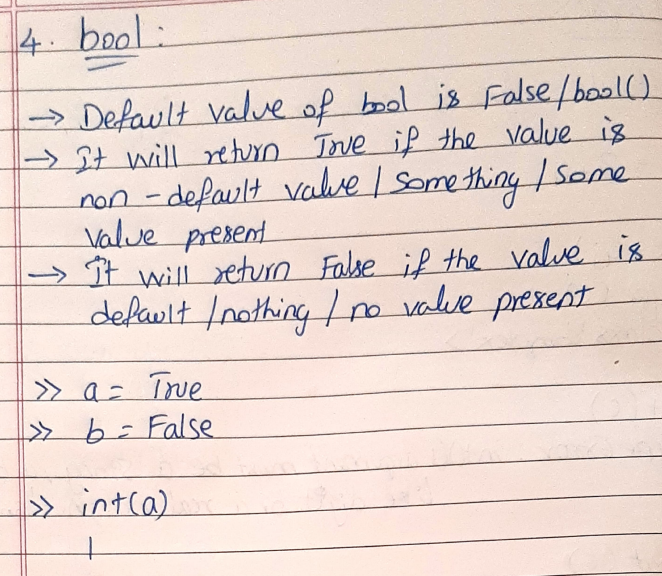 4. bool:
→ Default value of bool is False/bool()
→ It will return True if the value is
non-default value / something / some
value present
→ It will return False if the value is
default /nothing / no value present
>> a = True
>> b = False
>> int(a)
1